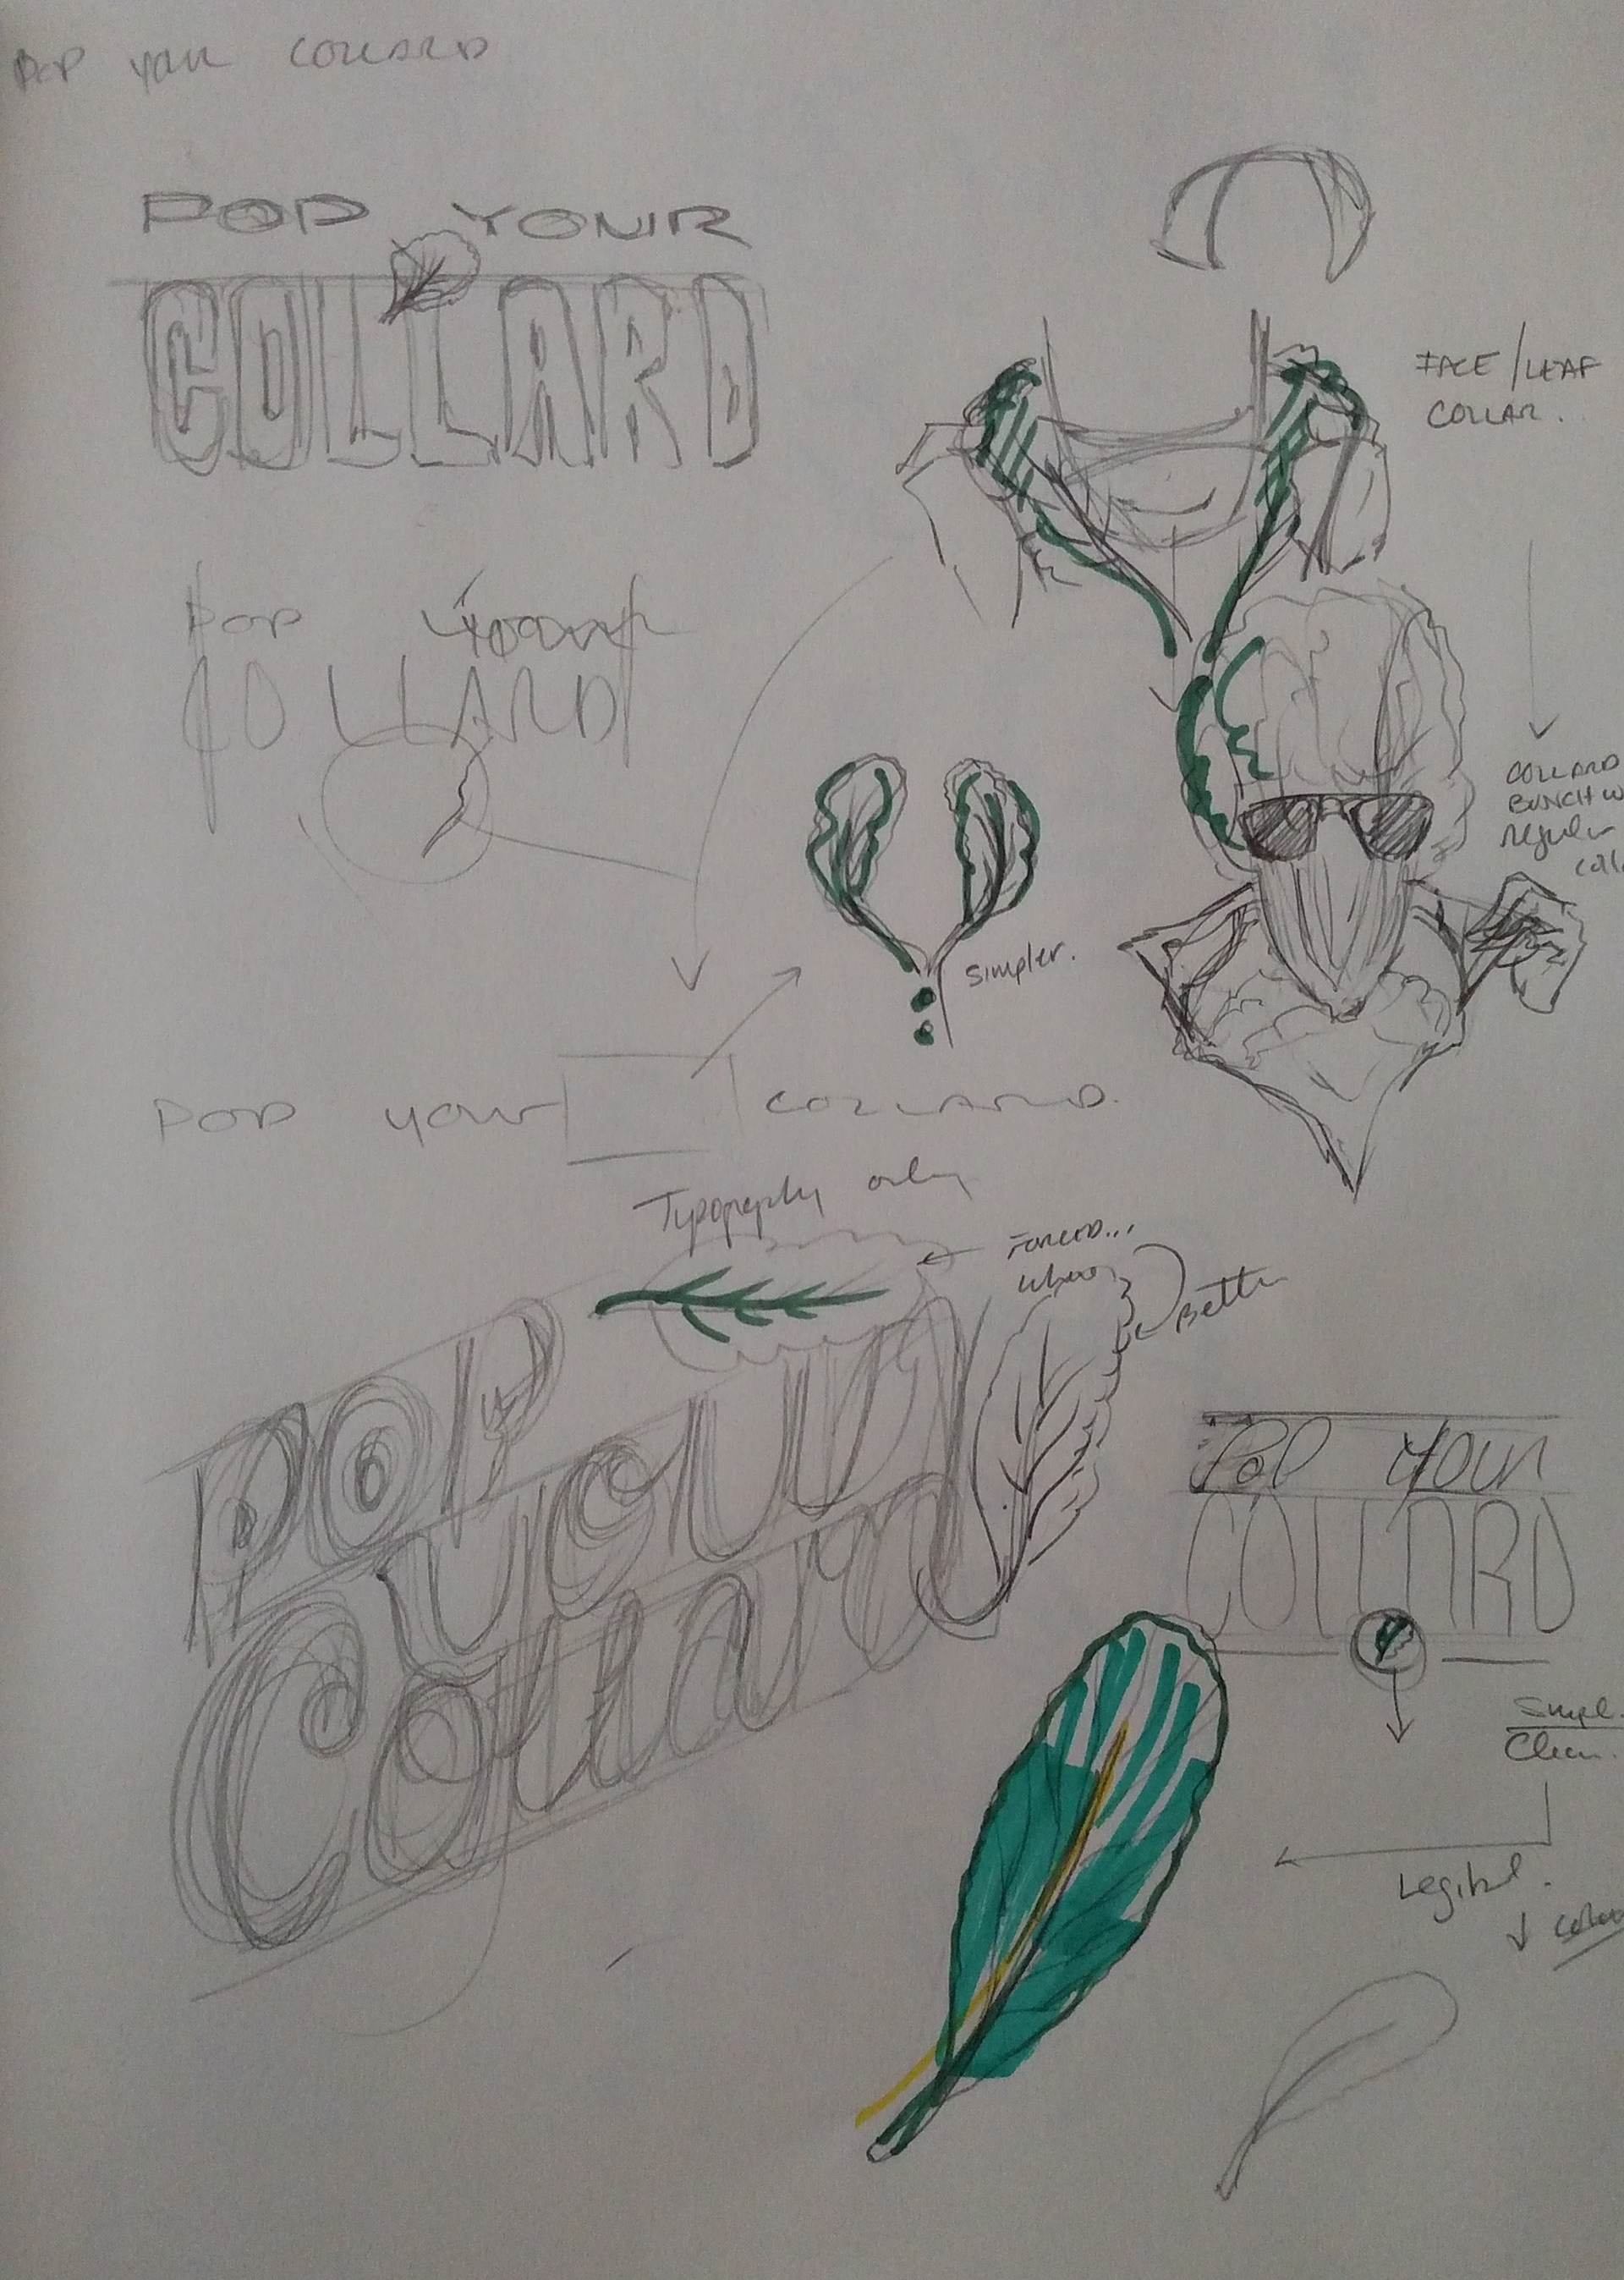 POP YOUR COLLARD
POP YOUR
COLLARD
POP YOUR
COLLARD
FACE/LEAF
COLLAR.
COLLARD
BUNCH W
regular
Simpler.
POP YOUR COLLARD.
Typography only
FORCED...
Better
POP
YOUR
Collard
POP YOUR
COLLARD
Clean.